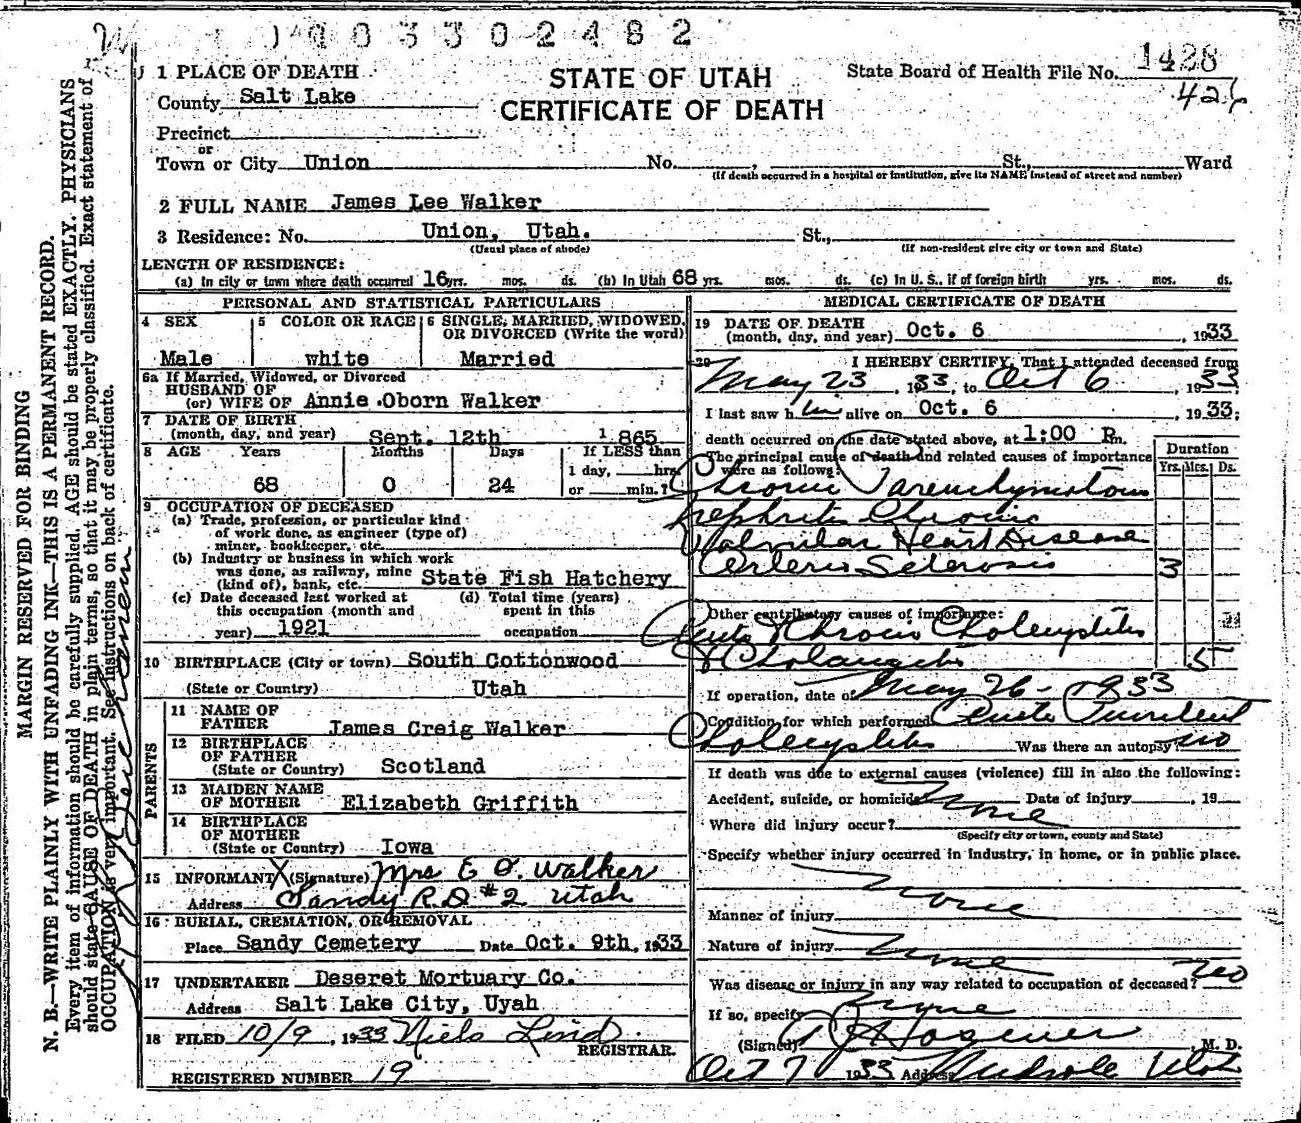 1403302482
1 PLACE OF DEATH
STATE OF UTAH
CERTIFICATE OF DEATH
State Board of Health File No. 1428
426
County Salt Lake
Precinct
or
Town or City Union No. , St., Ward
(If death occurred in a hospital or institution, give its NAME instead of street and number)
2 FULL NAME James Lee Walker
3 Residence: No. Union, Utah. St.,
(Usual place of abode) (If non-resident give city or town and State)
LENGTH OF RESIDENCE:
(a) In city or town where death occurred 16 yrs. mos. ds. (b) In Utah 68 yrs. mos. ds. (c) In U. S., if of foreign birth yrs. mos. ds.
PERSONAL AND STATISTICAL PARTICULARS
4 SEX 5 COLOR OR RACE 6 SINGLE, MARRIED, WIDOWED, OR DIVORCED (Write the word)
Male white Married
6a If Married, Widowed, or Divorced
HUSBAND OF
(or) WIFE OF Annie Oborn Walker
7 DATE OF BIRTH
(month, day, and year) Sept. 12th 1865
8 AGE Years Months Days If LESS than
1 day, hrs.
68 0 24 or min.?
9 OCCUPATION OF DECEASED
(a) Trade, profession, or particular kind
of work done, as engineer (type of)
miner, bookkeeper, etc.
(b) Industry or business in which work
was done, as railway, mine
(kind of), bank, etc. State Fish Hatchery
(c) Date deceased last worked at (d) Total time (years)
this occupation (month and spent in this
year) 1921 occupation
10 BIRTHPLACE (City or town) South Cottonwood
(State or Country) Utah
PARENTS
11 NAME OF
FATHER James Creig Walker
12 BIRTHPLACE
OF FATHER
(State or Country) Scotland
13 MAIDEN NAME
OF MOTHER Elizabeth Griffith
14 BIRTHPLACE
OF MOTHER
(State or Country) Iowa
15 INFORMANT X (Signature) Mrs E O. Walker
Address Sandy R.D #2 Utah
16 BURIAL, CREMATION, OR REMOVAL
Place Sandy Cemetery Date Oct. 9th, 1933
17 UNDERTAKER Deseret Mortuary Co.
Address Salt Lake City, Uyah
18 FILED 10/9, 1933 Niels Lind
REGISTRAR.
REGISTERED NUMBER 19
MEDICAL CERTIFICATE OF DEATH
19 DATE OF DEATH
(month, day, and year) Oct. 6, 1933
20 I HEREBY CERTIFY, That I attended deceased from
May 23 1933, to Oct 6, 1933
I last saw him alive on Oct. 6, 1933;
death occurred on the date stated above, at 1:00 P.m.
The principal cause of death and related causes of importance
were as follows:
Duration
Yrs. Mos. Ds.
Chronic Parenchymatous
Nephritis Chronic
Valvular Heart Disease
Arterio Sclerosis 3
Other contributory causes of importance:
Acute & Chronic Cholecystitis
& Cholangitis 5
If operation, date of May 26 - 1933
Condition for which performed Acute Purulent
Cholecystitis Was there an autopsy? no
If death was due to external causes (violence) fill in also the following:
Accident, suicide, or homicide None Date of injury , 19
Where did injury occur?
(Specify city or town, county and State)
Specify whether injury occurred in industry, in home, or in public place.
None
Manner of injury
Nature of injury None
Was disease or injury in any way related to occupation of deceased? no
If so, specify
(Signed) , M. D.
Oct 7 1933 Address Midvale Utah
MARGIN RESERVED FOR BINDING
N. B.—WRITE PLAINLY WITH UNFADING INK—THIS IS A PERMANENT RECORD.
Every item of information should be carefully supplied. AGE should be stated EXACTLY. PHYSICIANS
should state CAUSE OF DEATH in plain terms, so that it may be properly classified. Exact statement of
OCCUPATION is very important. See instructions on back of certificate.